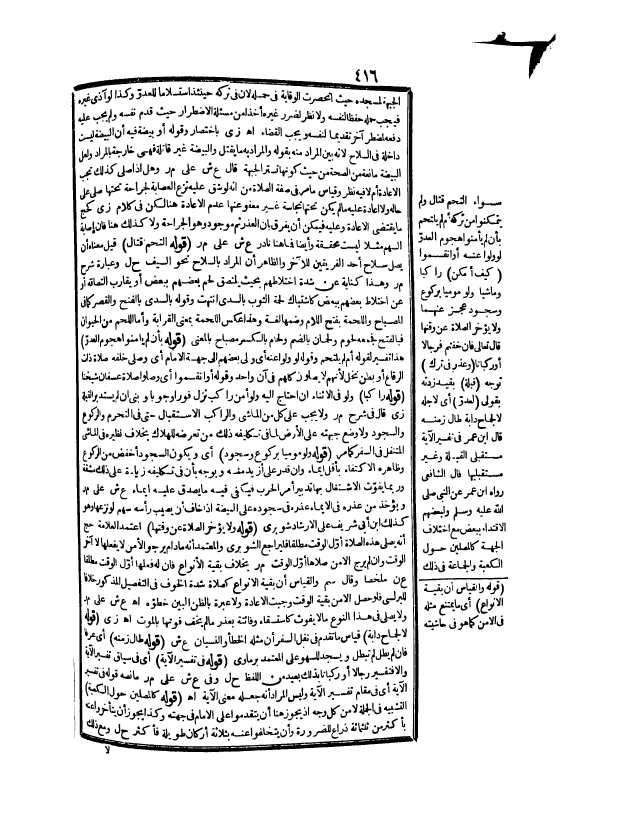 ٤١٦
الجبهة لمسجده حيث انحصرت الوقاية فى حمله لان فى تركه حينئذ استسلاما للعدو وكذا لو آذى غيره
فيجب حمله حفظا لنفسه ولا نظر لضرر غيره أخذا من مسئلة الاضطرار حيث قدم نفسه ولم يجب عليه
دفعه لمضطر آخر تقديما لنفسه ويجب القضاء اه زى باختصار وقوله أو بيضة فيه أن البيضة ليست
داخلة فى السلاح لانه بين المراد منه بقوله والمراد به ما يقتل والبيضة غير قاتلة فهى خارجة بالمراد ولعل
البيضة مانعة من الصحة من حيث كونها تستر الجبهة قال ع ش على م ر وهل اذا صلى كذلك تجب
الاعادة أم لا فيه نظر وقياس ما مر فى صفة الصلاة من أنه لو شق عليه نزع العصابة لجراحة تحتها صلى على
حاله ولا اعادة عليه ما لم يكن تحتها نجاسة غير معفو عنها عدم الاعادة هنا لكن فى كلام زى كحج
ما يقتضى الاعادة وعليه فيمكن أن يفرق بأن العذر ثم موجود وهو الجراحة ولا كذلك هنا فان اصابة
السهم مثلا ليست محققة وأيضا فما هنا نادر ع ش على م ر (قوله التحم قتال) قيل معناه أن
يصل سلاح أحد الفريقين للآخر والظاهر أن المراد بالسلاح نحو السيف ح ل وعبارة شرح
م ر وهذا كناية عن شدة اختلاطهم بحيث يلتصق لحم بعضهم ببعض أو يقارب التصاقه أو
عن اختلاط بعضهم ببعض كاشتباك لحمة الثوب بالسدى انتهت وقوله بالسدى بالفتح والقصر كما فى
المصباح واللحمة بفتح اللام وضمها لغة وهذا عكس اللحمة بمعنى القرابة وأما اللحم من الحيوان
فبالفتح فجمعه لحوم ولحمان بالضم ولحام بالكسر مصباح بالمعنى (قوله بأن لم يأمنوا هجوم العدو)
هذا تفسير لقوله أم لم يلتحم وقوله لو ولوا عنه أى ولى بعضهم الى جهة الامام أى وصلى خلفه صلاة ذات
الرقاع أو بطن نخل لأنهم لا يصلون كلهم فى آن واحد وقوله أو انقسموا أى وصلوا صلاة عسفان شيخنا
(قوله راكبا) ولو فى الاثناء ان احتاج اليه ولو أمن راكب نزل فورا وجوبا وبنى ان لم يستدبر القبلة
زى قال فى شرح م ر ولا يجب على كل من الماشى والراكب الاستقبال حتى فى التحرم والركوع
والسجود ولا وضع جبهته على الأرض لما فى تكليفه ذلك من تعرضه للهلاك بخلاف نظيره فى الماشى
المتنفل فى السفر كما مر (قوله ولو موميا بركوع وسجود) أى ويكون السجود أخفض من الركوع
وظاهره الاكتفاء بأقل ايماء وان قدر على أزيد منه ويوجه بأن فى تكليفه زيادة على ذلك مشقة
وربما يفوت الاشتغال بها تدبير أمر الحرب فيكفى فيه ما يصدق عليه ايماء ع ش على م ر
ويؤخذ من عذره فى الايماء عذره فى سجوده على البيضة اذا خاف أن يصيب رأسه سهم لو نزعها وهو
كذلك ابن أبى شريف على الارشاد شوبرى (قوله ولا يؤخر الصلاة عن وقتها) اعتمد العلامة حج
أنه يصلى هذه الصلاة أول الوقت مطلقا فليراجع الشوبرى والمعتمد أنه مادام يرجو الأمن لا يفعلها لا آخر
الوقت وان لم يرج الامن صلاها أول الوقت م ر بخلاف بقية الأنواع فان له فعلها أول الوقت مطلقا
ع ن ملخصا وقال سم والقياس أن بقية الانواع كصلاة شدة الخوف فى التفصيل المذكور خلافا
للبرلسى فلو حصل الامن بقية الوقت وجبت الاعادة ولا عبرة بالظن البين خطؤه اه ع ش على م ر
ولا يصلى فى هذا النوع ما لا يفوت كاستسقاء وفائتة بعذر ما لم يخف فوتها بالموت اه زى (قوله
لا لجماح دابة) قياس ما تقدم فى نفل السفر أن مثله الخطأ والنسيان ع ش (قوله طال زمنه) أى عرفا
فان لم يطل لم تبطل ويسجد للسهو على المعتمد برماوى (قوله فى تفسير الآية) أى فى سياق تفسير الآية
والا فتفسير رجالا أو ركبانا بذلك بعيد من اللفظ ح ل وفى ع ش على م ر مانصه قوله فى تفسير
الآية أى فى مقام تفسير الآية وليس المراد أنه جعله معنى الآية اه (قوله كالمصلين حول الكعبة)
التشبيه فى الجملة لا من كل وجه اذ يجوز هنا أن يتقدموا على الامام فى جهته وكذا يجوز أن يتأخروا عنه
بأكثر من ثلثمائة ذراع للضرورة وأن يتخلفوا عنه بثلاثة أركان طويلة فأكثر ح ل ومع ذلك
لا
سواء التحم قتال ولم
يتمكنوا من تركه أم لم يلتحم
بأن لم يأمنوا هجوم العدو
لو ولوا عنه أو انقسموا
(كيف أمكن) راكبا
وماشيا ولو موميا بركوع
وسجود عجز عنهما
ولا يؤخر الصلاة عن وقتها
قال تعالى فان خفتم فرجالا
أو ركبانا (وعذر فى ترك)
توجه (قبلة) بقيد زدته
بقولى (لعدو) أى لاجله
لا لجماح دابة طال زمنه
قال ابن عمر فى تفسير الآية
مستقبلى القبلة وغير
مستقبليها قال الشافعى
رواه ابن عمر عن النبى صلى
الله عليه وسلم ولبعضهم
الاقتداء ببعض مع اختلاف
الجهة كالمصلين حول
الكعبة والجماعة فى ذلك
(قوله والقياس أن بقية
الانواع) أى ما يمتنع مثله
فى الامن كما هو فى حاشيته